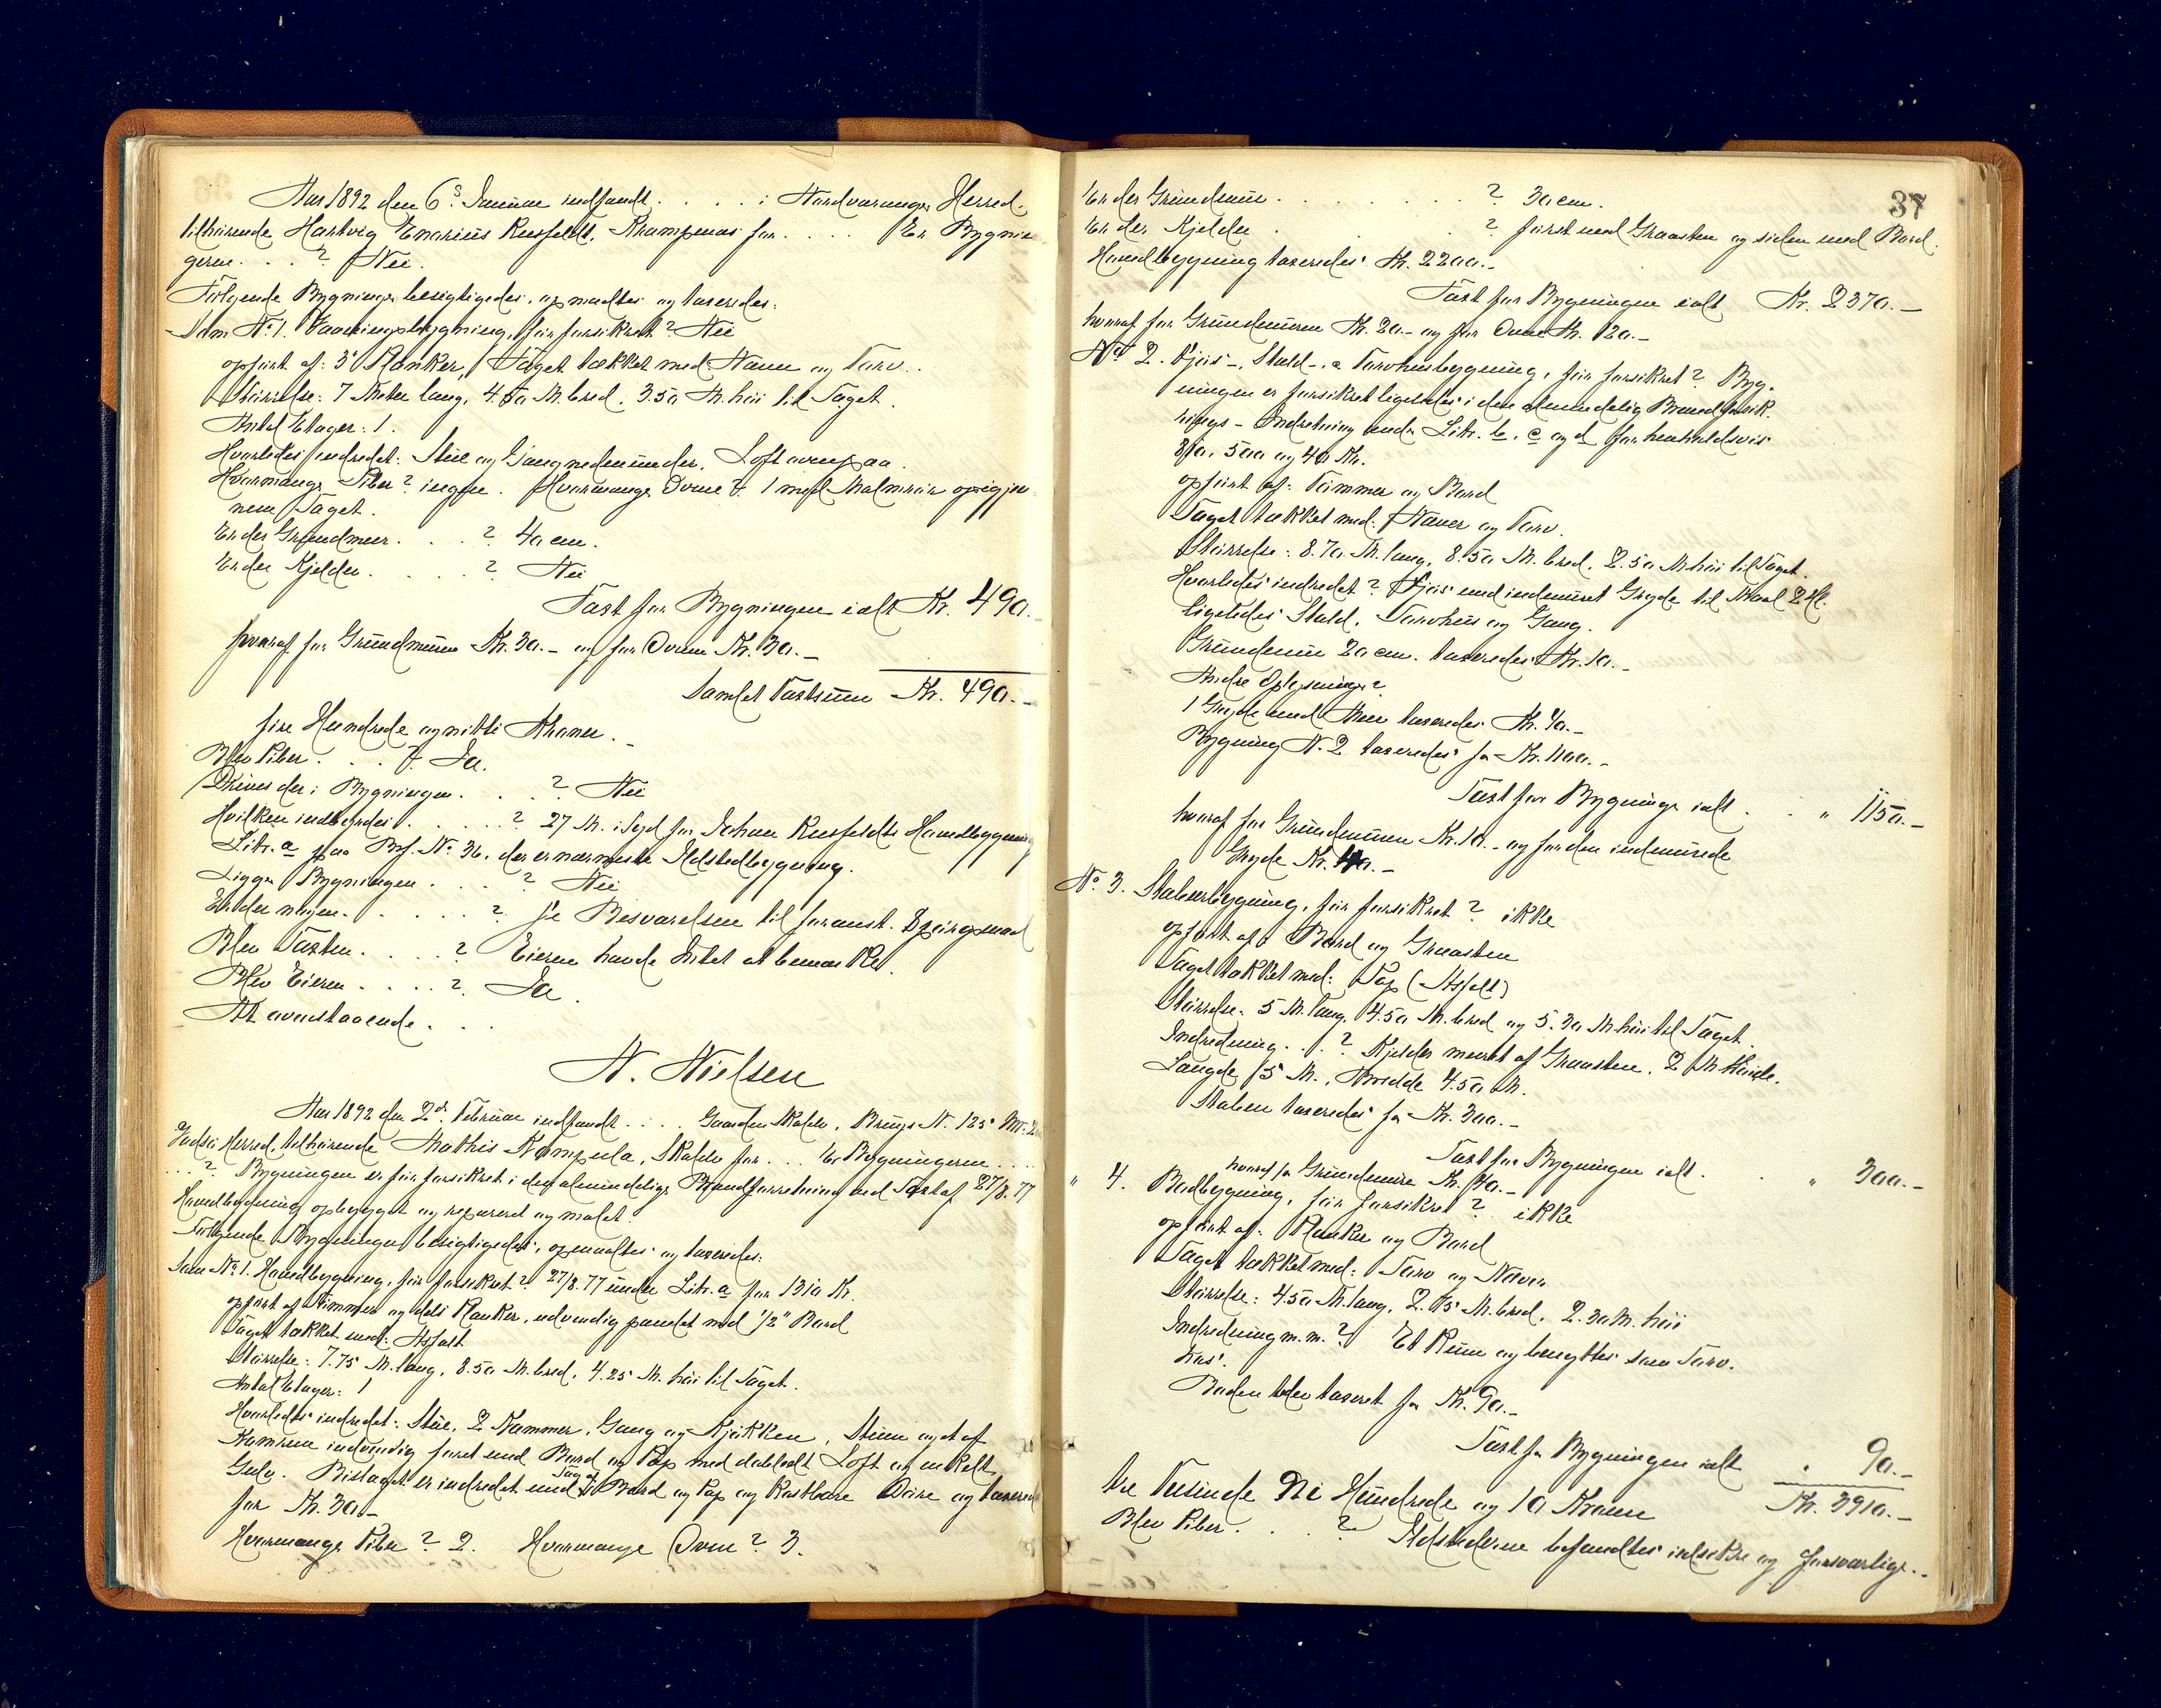 Aar 1892 den 6s Januar indfandt . . . . i Nordvaranger Herred
tilhørende Hartvig Enarius Rusfeldt, Krampenæs for . . . . Er Bygnin
gerne . . . ? Nei.
Følgende Bygninger besigtigedes, opmaaltes og taxeredes:
Som No 1. Vaaningsbygning, før forsikret? Nei
opført af: 3" Planker, Taget tækket med Næver og Torv.
Størrelse: 7 Meter lang, 4.50 M. bred, 3.50 M. høi til Taget.
Antal Etager: 1.
Hvorledes indredet: Stue og Gang nedenunder, Loft ovenpaa.
Hvormange Piber? ingen. Hvormange Ovne? 1 med Malmrør opigjen
nem Taget.
Er der Grundmur . . . ? 40 cm.
Er der Kjelder . . . . ? Nei
Taxt for Bygningen ialt Kr. 490.
hvoraf for Grundmuren Kr. 30.- og for Ovnen Kr. 30.-
Samlet Taxtsum Kr. 490.-
fire Hundrede og nitti Kroner.-
Blev Piber . . . ? Ja.
Drives der i Bygningen . . . ? Nei
Hvilken indbyrdes . . . . . ? 27 M. i Syd for Johan Rusfeldts Hovedbygning
Litr. a paa Brf. No 36, der er nærmeste Ildstedbygning.
Ligger Bygningen . . . ? Nei
Er der nogen . . . . . ? Se Besvarelsen til foranst. Spørgsmaal
Blev Taxten . . . . ? Eieren havde Intet at bemærke.
Blev Eieren . . . . ? Ja.
At ovenstaaende . . .
N. Nielsen
Aar 1892 den 2d Februar indfandt . . . . Gaarden Skalelv, Brugs N. 125
Vadsø Herred, tilhørende Mathis Kumpula, Skalelv for . . . Er Bygningerne . . . .
. . . ? Bygningen er før forsikret i den almindelige Brandforretning ved Taxt af 27/8. 77
Hovedbygning opbygget og repareret og malet.
Følgende Bygninger besigtigedes, opmaaltes og taxeredes:
Som No 1. Hovedbygning, før forsikret? 27/8. 77 under Litr. a for 1310 Kr.
opført af Tømmer og dels Planker, udvendig panelet med 1/2" Bord
Taget tækket med: Asfalt
Størrelse: 7.75 M. lang, 8.50 M. bred, 4.25 M. høi til Taget.
Antal Etager: 1
Hvorledes indredet: Stue, 2 Kammer, Gang og Kjøkken, Stuen og et af
Kamrene indvendig foret med Bord og Pap med dobbelt Loft og enkelt
Gulv. Bislaget er indredet med Tag af Bord og Pap og Kostbare Døre og taxered
for Kr. 30.-
Hvormange Piber? 2. Hvormange Ovne? 3.
37
Er der Grundmur . . . . . . . . ? 30 cm.
Er der Kjelder . . . ? først med Graasten og siden med Bord.
Hovedbygning taxeredes Kr. 2200.-
Taxt for Bygningen ialt Kr. 2370.-
hvoraf for Grundmuren Kr. 20.- og for Ovne Kr. 120.-
No 2. Fjøs-, Stald-, & Torvhusbygning, før forsikret? Byg-
ningen er forsikret ligeledes i den almindelig Brandforsik-
rings-Indretning under Litr. b, c og d for henholdsvis
310, 500 og 40 Kr.
opført af: Tømmer og Bord
Taget tækket med: Næver og Torv.
Størrelse: 8.70 M. lang, 8.50 M. bred, 2.50 M. høi til Taget.
Hvorledes indredet? Fjøs med indmuret Gryde til Maal 2 Hl.
ligeledes Stald, Torvhus og Gang.
Grundmur 20 cm. taxeredes Kr. 10.-
Andre Oplysninger?
1 Gryde med Mur taxeredes Kr. 40.-
Bygning N. 2 taxeredes for Kr. 1100.-
Taxt for Bygninge ialt . . . " 1150.-
hvoraf for Grundmuren Kr. 10.- og for den indmurede
Gryde Kr. 40.-
No. 3. Stabursbygning, før forsikret? ikke
opført af: Bord og Graasten
Taget tækket med: Pap (Asfalt)
Størrelse: 5 M. lang, 4.50 M. bred og 5.30 M. høi til Taget.
Indredning . . . ? Kjelder muret af Graasten, 2 M. Høide.
Længde 5 M., Bredde 4.50 M.
Staburs taxeredes for Kr. 300.-
Taxt for Bygningen ialt . . . " 300.-
hvoraf for Grundmure Kr. 40.-
" 4. Bodbygning, før forsikret? ikke
opført af: Planker og Bord
Taget tækket med: Torv og Næver
Størrelse: 4.50 M. lang, 2.75 M. bred, 2.30 M. høi
Indredning m. m.? Et Rum og benyttes som Torv-
hus.
Boden blev taxeret for Kr. 90.-
Taxt for Bygningen ialt " 90.-
Kr. 3910.-
tre Tusinde Ni Hundrede og 10 Kroner
Blev Piber . . . ? Ildstederne befandtes ildsikre og forsvarlige.-